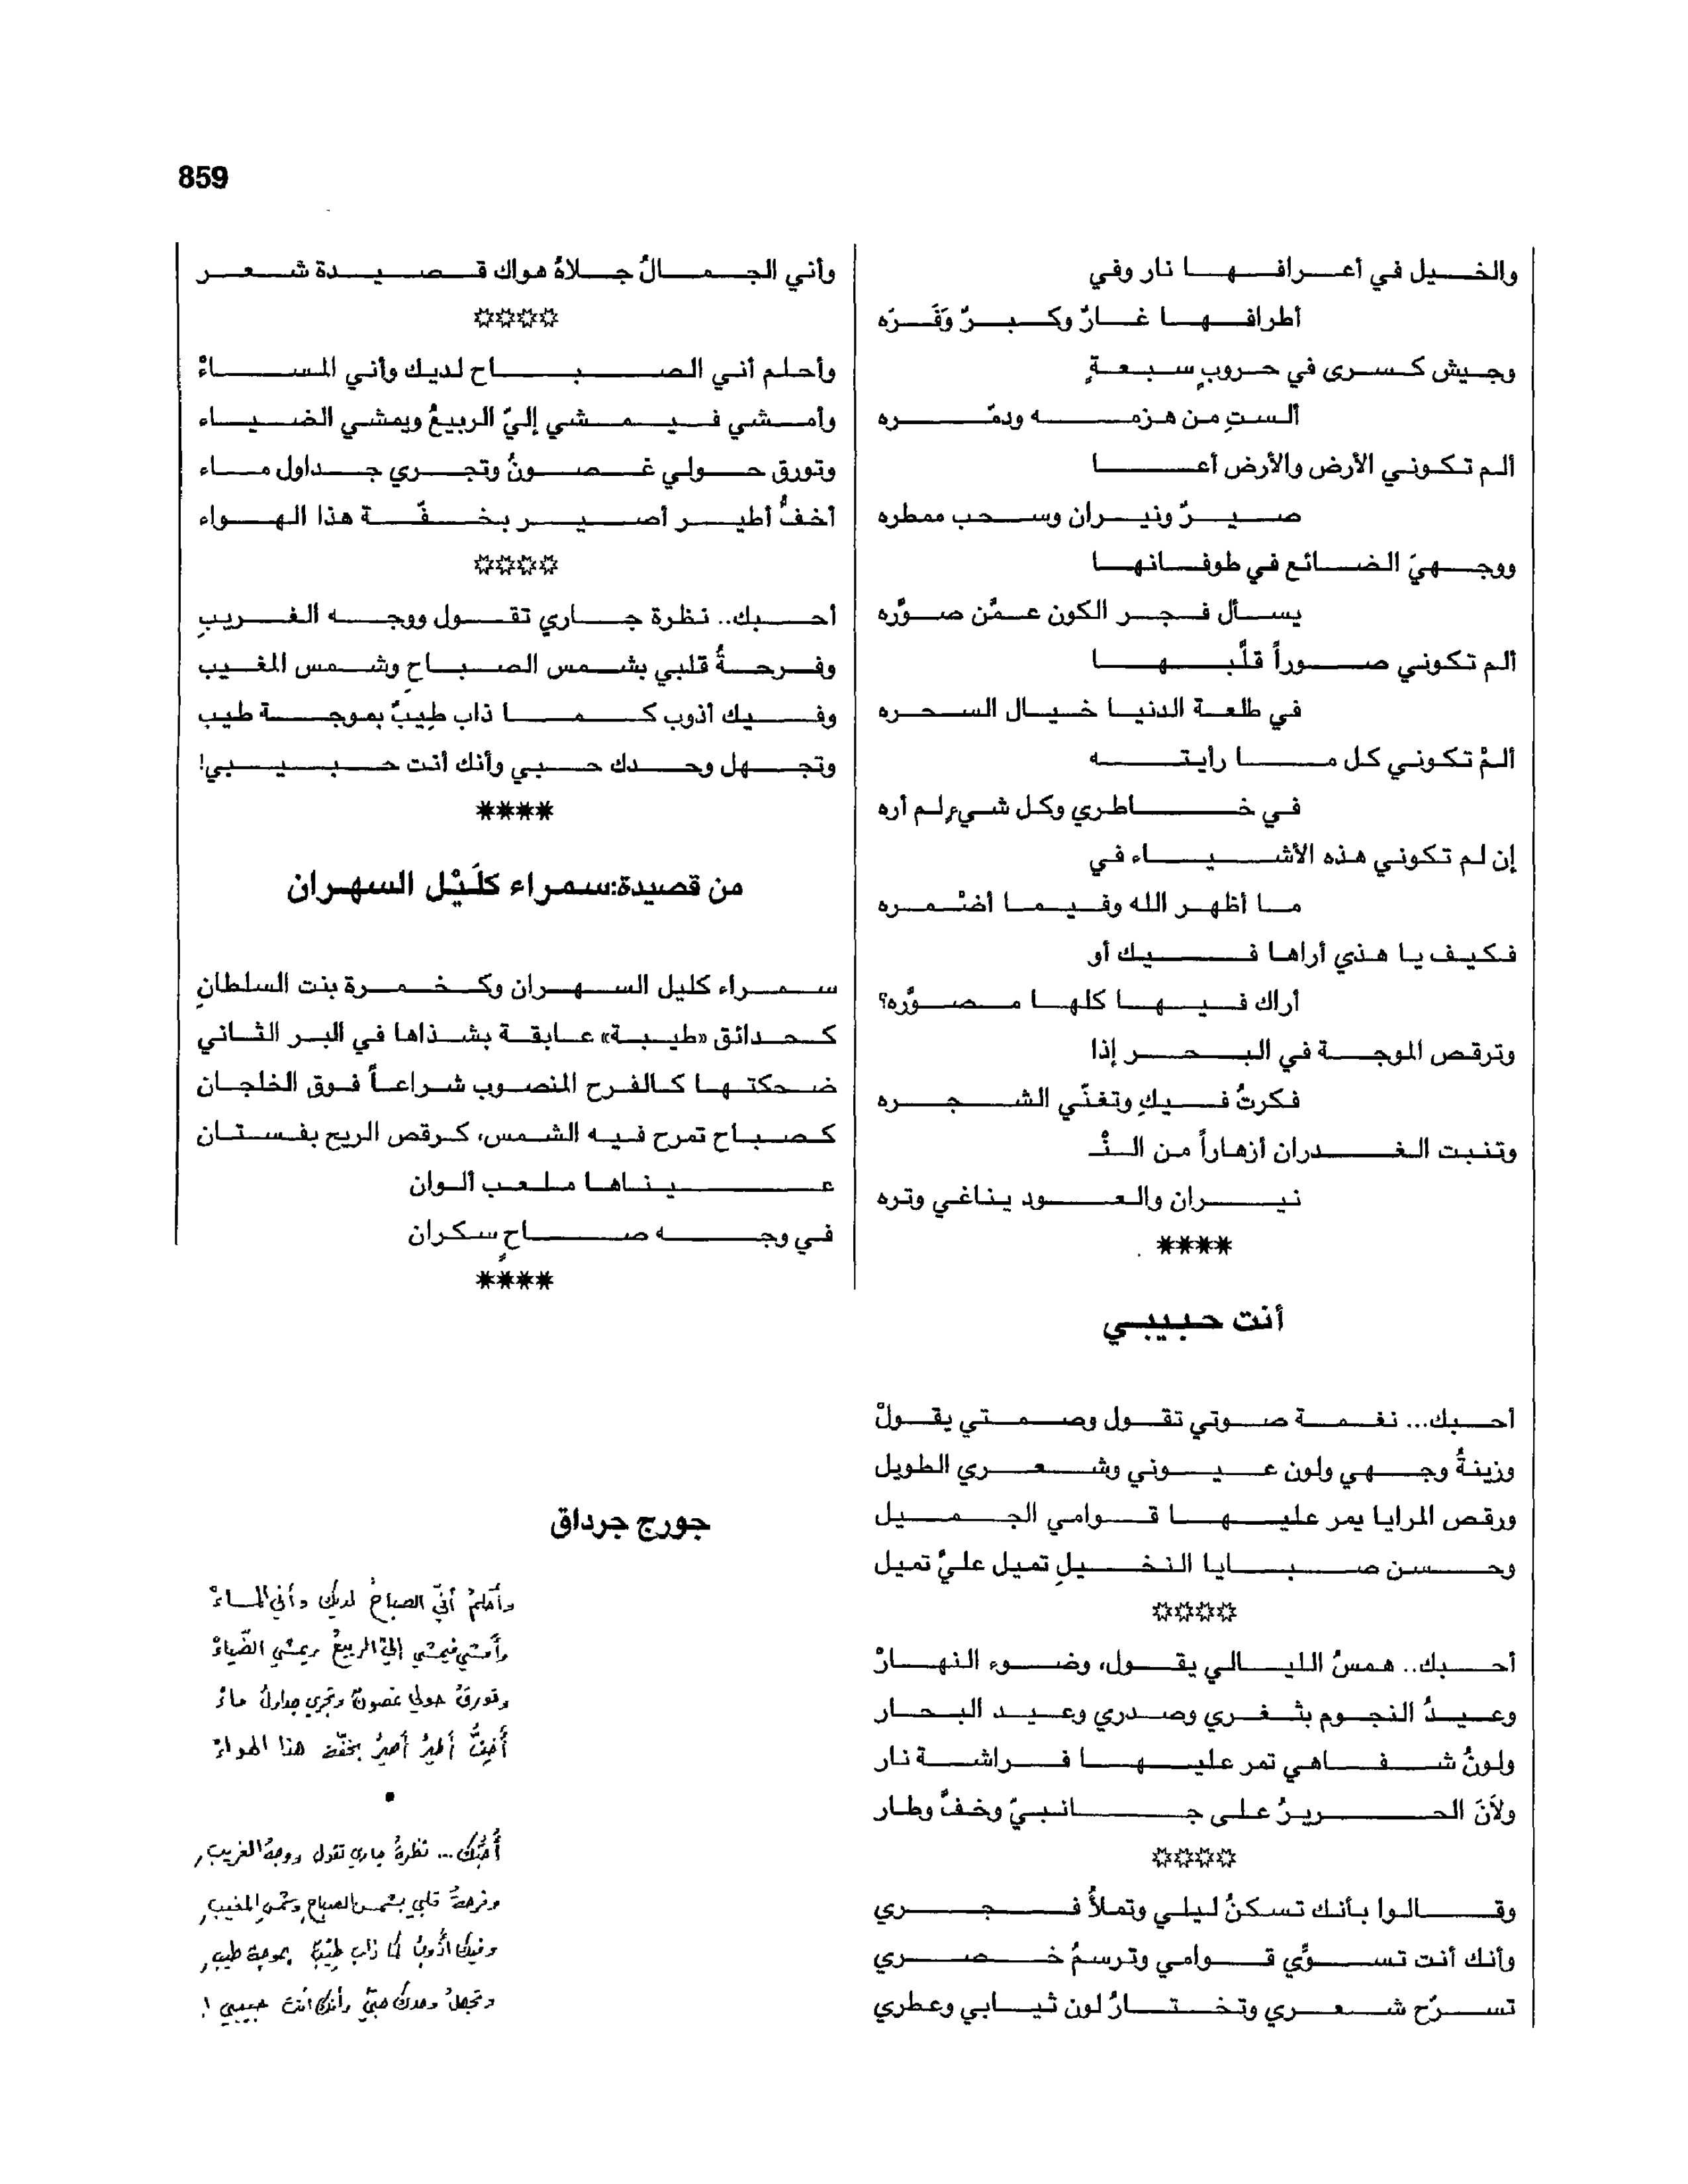 859
والخيل في أعرافها نار وفي
أطرافها غارٌ وكبرٌ وَقَرّه
وجيش كسرى في حروبٍ سبعةٍ
ألستِ من هزمه ودمّره
ألم تكوني الأرض والأرض أعا
صيرٌ ونيران وسحب ممطره
ووجهيَ الضائع في طوفانها
يسأل فجر الكون عمّن صوّره
ألم تكوني صوراً قلّبها
في طلعة الدنيا خيال السحره
ألمْ تكوني كل ما رأيته
في خاطري وكل شيءٍ لم أره
إن لم تكوني هذه الأشياء في
ما أظهر الله وفيما أضْمره
فكيف يا هذي أراها فيك أو
أراك فيها كلها مصوّره؟
وترقص الموجة في البحر إذا
فكرتُ فيكِ وتغنّي الشجره
وتنبت الغدران أزهاراً من النْـ
نيران والعود يناغي وتره
****
أنت حبيبي
أحبك... نغمة صوتي تقول وصمتي يقولْ
وزينةُ وجهي ولون عيوني وشعري الطويل
ورقص المرايا يمر عليها قوامي الجميل
وحسن صبايا النخيلِ تميل عليّ تميل
****
أحبك.. همسُ الليالي يقول، وضوء النهارْ
وعيدُ النجوم بثغري وصدري وعيد البحار
ولونُ شفاهي تمر عليها فراشة نار
ولاَنَ الحريرُ على جانبيّ وخفّ وطار
****
وقالوا بأنك تسكنُ ليلي وتملأُ فجري
وأنك أنت تسوّي قوامي وترسمُ خصري
تسرّح شعري وتختارُ لون ثيابي وعطري
وأني الجمالُ جلاهُ هواك قصيدة شعر
****
وأحلم أني الصباح لديك وأني المساءْ
وأمشي فيمشي إليّ الربيعُ ويمشي الضياء
وتورق حولي غصونٌ وتجري جداول ماء
أخفُّ أطير أصير بخفّة هذا الهواء
****
أحبك.. نظرة جاري تقول ووجه الغريبِ
وفرحةُ قلبي بشمس الصباحِ وشمس المغيب
وفيك أذوب كما ذاب طِيبٌ بموجة طيب
وتجهل وحدك حبي وأنك أنت حبيبي!
****
من قصيدة:سمراء كلَيْل السهران
سمراء كليل السهران وكخمرة بنت السلطانِ
كحدائق «طيبة» عابقة بشذاها في البر الثاني
ضحكتها كالفرح المنصوب شراعاً فوق الخلجان
كصباح تمرح فيه الشمس، كرقص الريح بفستان
عيناها ملعب ألوان
في وجه صاحٍ سكران
****
جورج جرداق
وأحلمُ أنّي الصباحُ لديك وأني المساءْ
وأمشي فيمشي إليّ الربيعُ ويمشي الضّياءْ
وتورقُ حولي غصونٌ وتجري جداولُ ماءْ
أخفُّ أطيرُ أصيرُ بخفّة هذا الهواءْ
أُحبّك... نظرةُ جاري تقول ووجهُ الغريبِ
وفرحةُ قلبي بشمس الصباحِ وشمسِ المغيبِ
وفيك أذوبُ كما ذاب طِيْبٌ بموجة طيبِ
وتجهلُ وحدك حبّي وأنك أنت حبيبي!